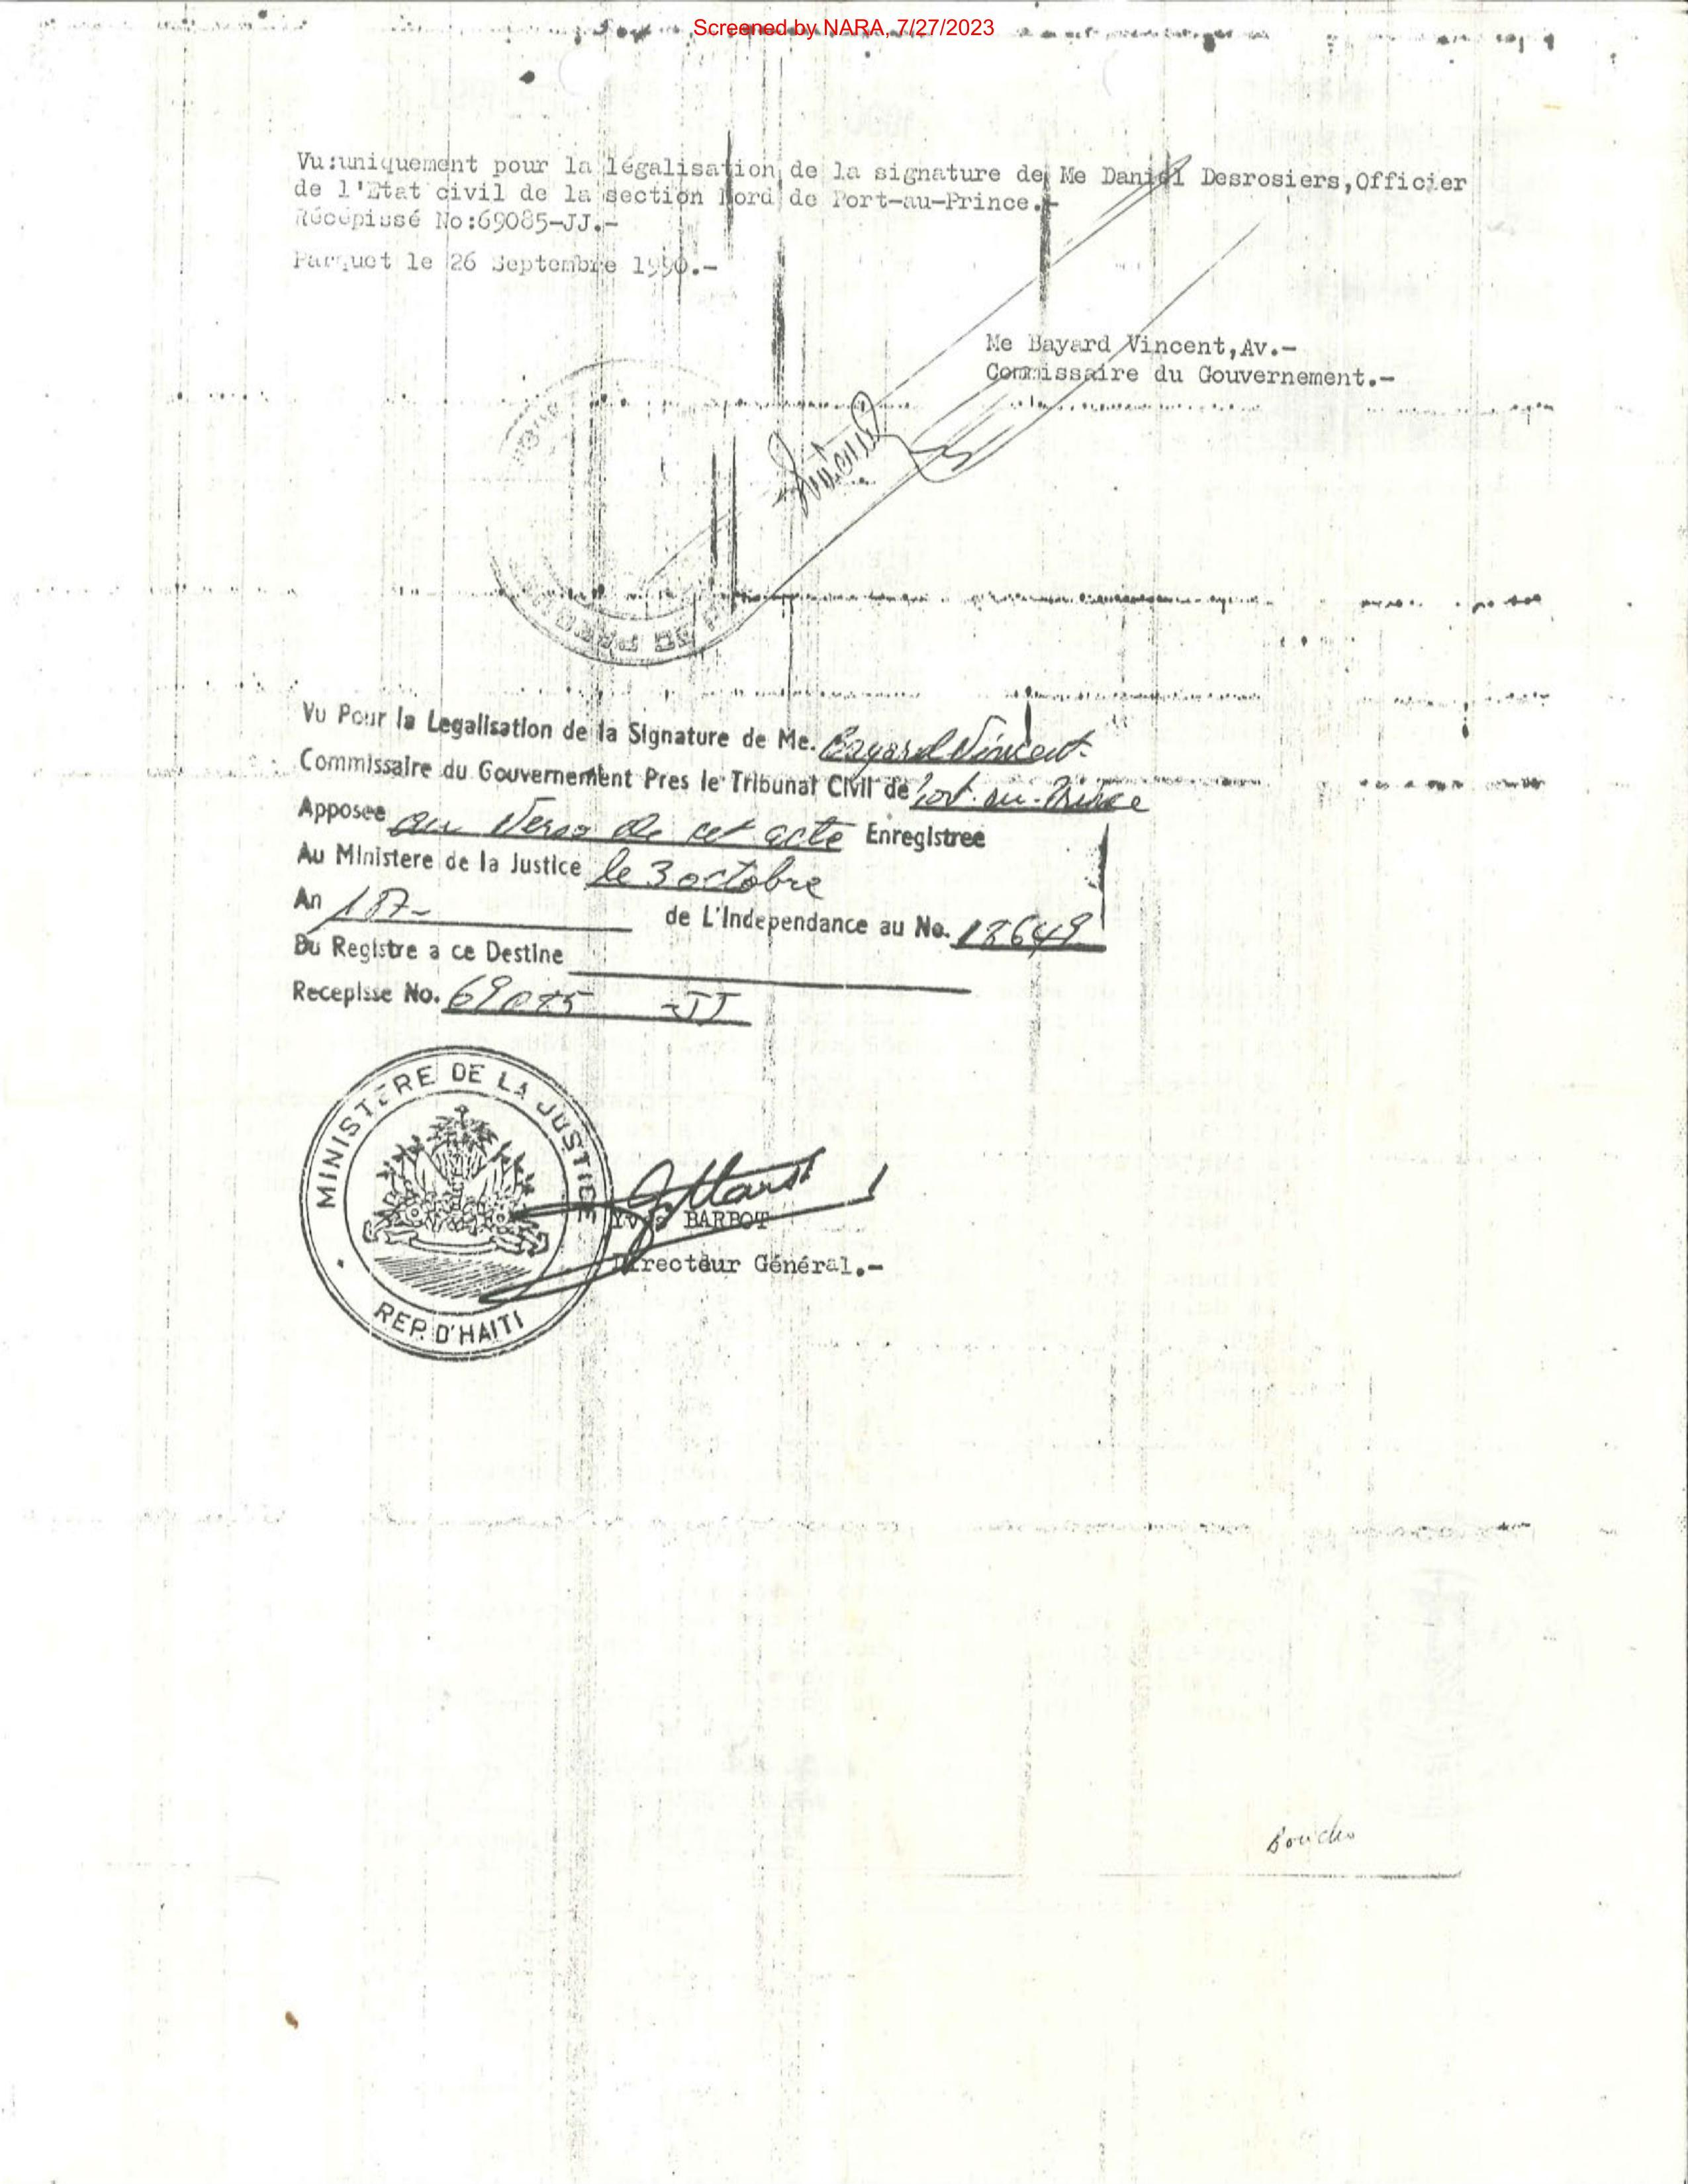 Screened by NARA, 7/27/2023
Vu:uniquement pour la légalisation de la signature de Me Daniel Desrosiers,Officier
de l'Etat civil de la section Nord de Port-au-Prince.-
Récépissé No:69085-JJ.-
Parquet le 26 Septembre 1990.-
Me Bayard Vincent,Av.-
Commissaire du Gouvernement.-
Vu Pour la Legalisation de la Signature de Me. Bayard Vincent
Commissaire du Gouvernement Pres le Tribunal Civil de Port-au-Prince
Apposee au verso de cet acte Enregistree
Au Ministere de la Justice le 3 octobre
An 187- de L'Independance au No. 18649
Du Registre a ce Destine
Recepisse No. 69085 -JJ
MINISTERE DE LA JUSTICE
REP. D'HAITI
Yves BARBOT
Directeur Général.-